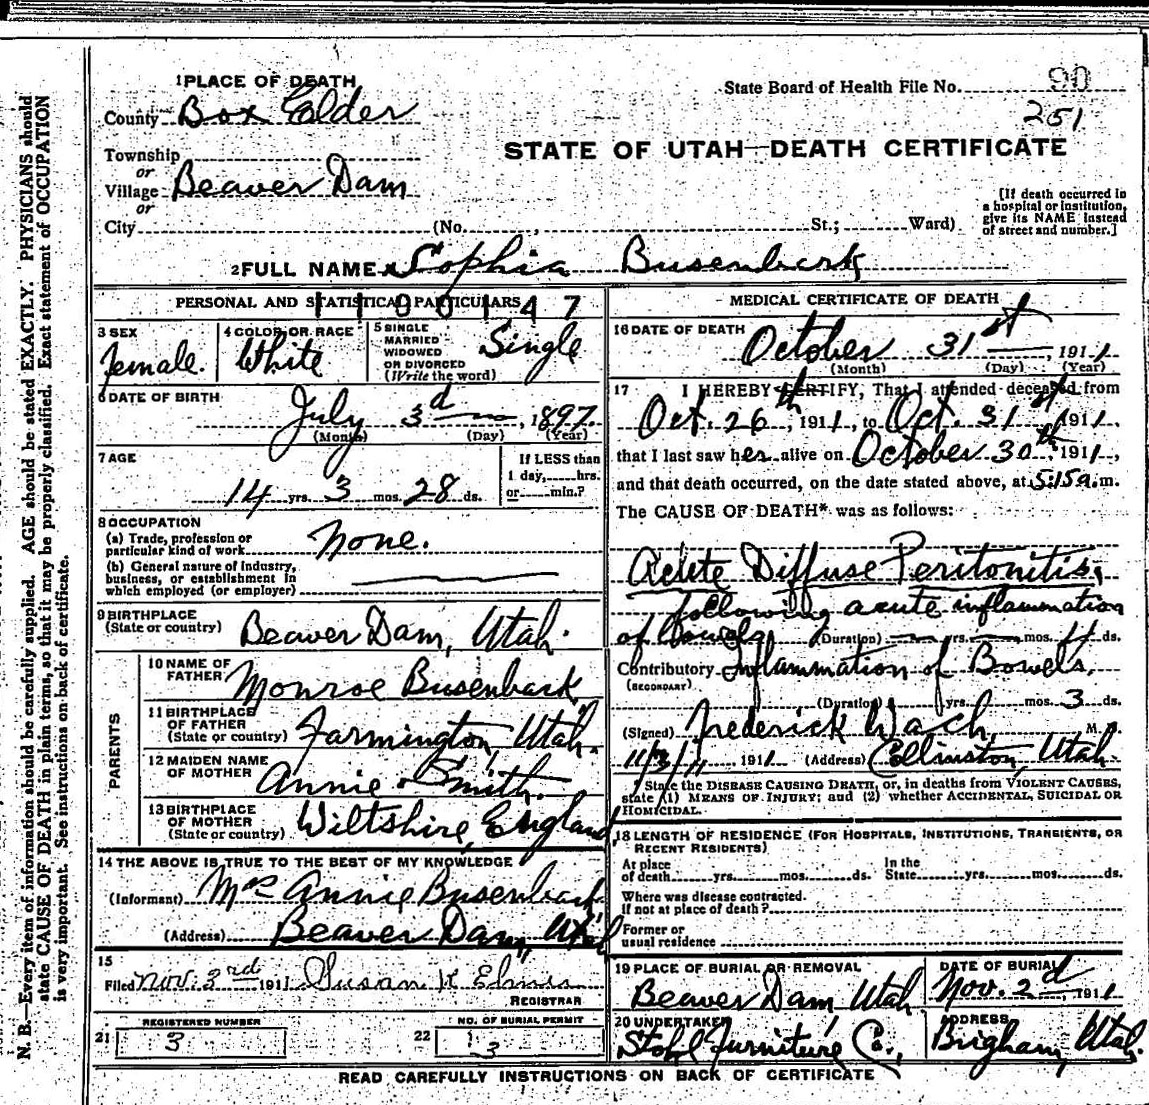 1 PLACE OF DEATH
County Box Elder
Township
or
Village Beaver Dam
or
City (No. , St.; Ward)
State Board of Health File No. 90
251
STATE OF UTAH—DEATH CERTIFICATE
[If death occurred in
a hospital or institution,
give its NAME instead
of street and number.]
2 FULL NAME Sophia Busenbark
PERSONAL AND STATISTICAL PARTICULARS
3 SEX
female.
4 COLOR OR RACE
White
5 SINGLE
MARRIED
WIDOWED
OR DIVORCED
(Write the word)
Single
6 DATE OF BIRTH
July 3d, 1897.
(Month) (Day) (Year)
7 AGE
14 yrs. 3 mos. 28 ds.
If LESS than
1 day, hrs.
or min.?
8 OCCUPATION
(a) Trade, profession or
particular kind of work None.
(b) General nature of industry,
business, or establishment in
which employed (or employer)
9 BIRTHPLACE
(State or country) Beaver Dam, Utah.
PARENTS
10 NAME OF
FATHER Monroe Busenbark
11 BIRTHPLACE
OF FATHER
(State or country) Farmington, Utah.
12 MAIDEN NAME
OF MOTHER
Annie Smith.
13 BIRTHPLACE
OF MOTHER
(State or country) Wiltshire, England
14 THE ABOVE IS TRUE TO THE BEST OF MY KNOWLEDGE
(Informant) Mrs Annie Busenbark
(Address) Beaver Dam, Utah
15
Filed Nov. 3rd 1911 Susan
REGISTRAR
REGISTERED NUMBER
21 3
NO. OF BURIAL PERMIT
22 3
MEDICAL CERTIFICATE OF DEATH
16 DATE OF DEATH
October 31st, 1911
(Month) (Day) (Year)
17 I HEREBY CERTIFY, That I attended deceased from
Oct. 26th, 1911, to Oct. 31st 1911,
that I last saw her alive on October 30th, 1911,
and that death occurred, on the date stated above, at 5:15 a.m.
The CAUSE OF DEATH* was as follows:
Acute Diffuse Peritonitis,
following acute inflammation
of bowels (Duration) yrs. mos. 4 ds.
Contributory Inflammation of Bowels.
(SECONDARY)
(Duration) yrs. mos. 3 ds.
(Signed) Frederick Wach, M.D.
1911 (Address) Collinston, Utah.
State the DISEASE CAUSING DEATH, or, in deaths from VIOLENT CAUSES,
state (1) MEANS OF INJURY; and (2) whether ACCIDENTAL, SUICIDAL OR
HOMICIDAL.
18 LENGTH OF RESIDENCE (FOR HOSPITALS, INSTITUTIONS, TRANSIENTS, OR
RECENT RESIDENTS)
At place
of death yrs. mos. ds.
In the
State yrs. mos. ds.
Where was disease contracted.
if not at place of death?
Former or
usual residence
19 PLACE OF BURIAL OR REMOVAL
Beaver Dam, Utah
DATE OF BURIAL
Nov. 2d, 1911
20 UNDERTAKER
Stohl Furniture Co.,
ADDRESS
Brigham, Utah.
READ CAREFULLY INSTRUCTIONS ON BACK OF CERTIFICATE
N. B.—Every item of information should be carefully supplied. AGE should be stated EXACTLY. PHYSICIANS should
state CAUSE OF DEATH in plain terms, so that it may be properly classified. Exact statement of OCCUPATION
is very important. See instructions on back of certificate.